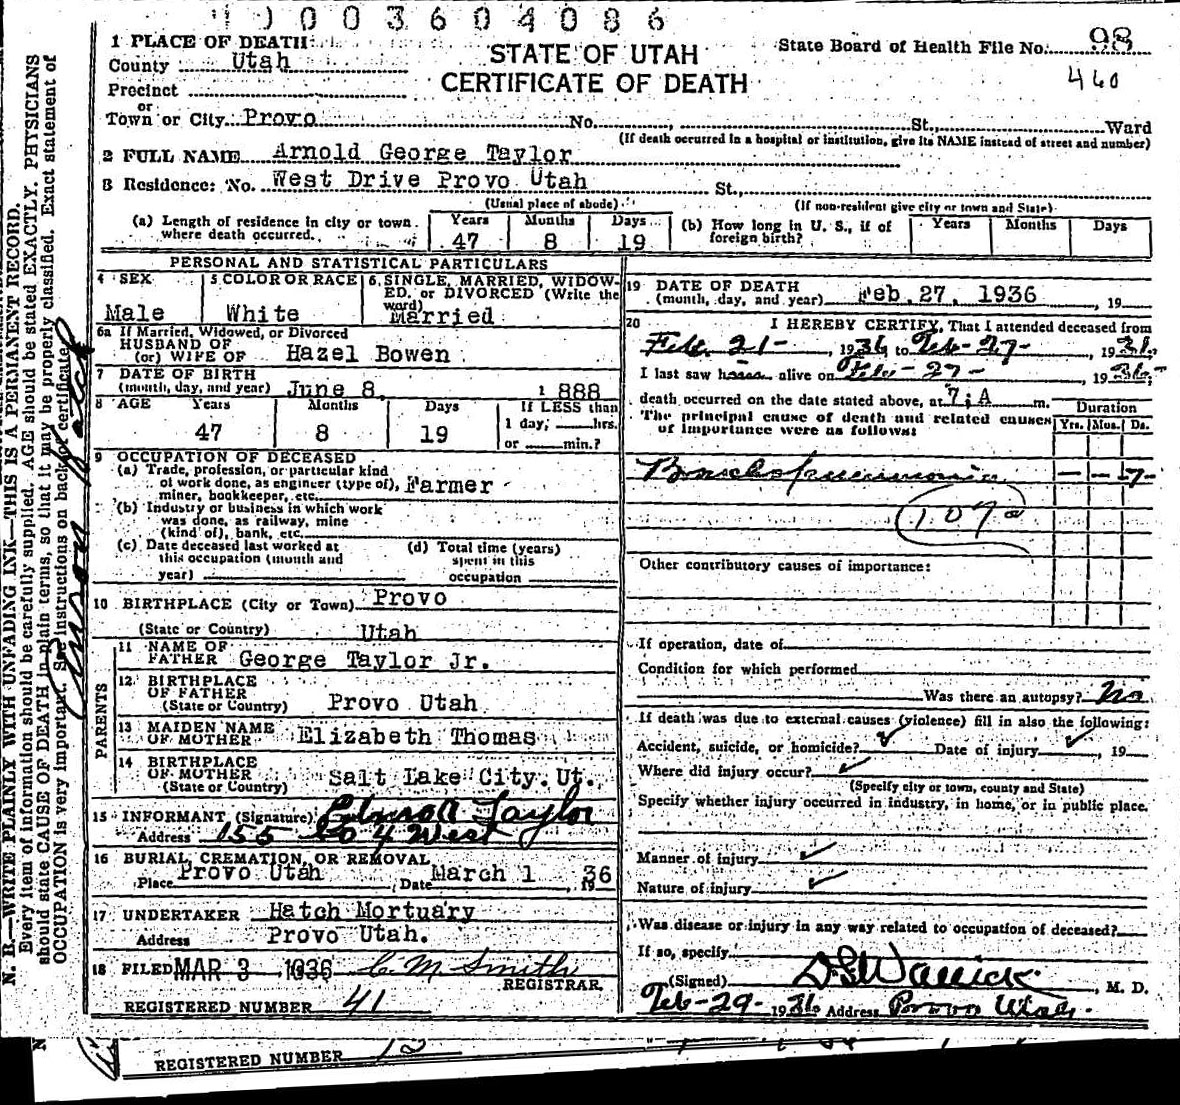 1003604086
STATE OF UTAH
CERTIFICATE OF DEATH
State Board of Health File No. 98
460
1 PLACE OF DEATH
County Utah
Precinct
or
Town or City Provo No. , St., Ward
(If death occurred in a hospital or institution, give its NAME instead of street and number)
2 FULL NAME Arnold George Taylor
3 Residence: No. West Drive Provo Utah St.,
(Usual place of abode) (If non-resident give city or town and State)
(a) Length of residence in city or town where death occurred. Years 47 Months 8 Days 19 (b) How long in U. S., if of foreign birth? Years Months Days
PERSONAL AND STATISTICAL PARTICULARS
4 SEX Male
5 COLOR OR RACE White
6. SINGLE, MARRIED, WIDOWED, or DIVORCED (Write the word) Married
6a If Married, Widowed, or Divorced
HUSBAND OF
(or) WIFE OF Hazel Bowen
7 DATE OF BIRTH
(month, day, and year) June 8, 1888
8 AGE Years 47 Months 8 Days 19 If LESS than 1 day, hrs. or min.?
9 OCCUPATION OF DECEASED
(a) Trade, profession, or particular kind of work done, as engineer (type of), miner, bookkeeper, etc. Farmer
(b) Industry or business in which work was done, as railway, mine (kind of), bank, etc.
(c) Date deceased last worked at this occupation (month and year)
(d) Total time (years) spent in this occupation
10 BIRTHPLACE (City or Town) Provo
(State or Country) Utah
PARENTS
11 NAME OF FATHER George Taylor Jr.
12 BIRTHPLACE OF FATHER (State or Country) Provo Utah
13 MAIDEN NAME OF MOTHER Elizabeth Thomas
14 BIRTHPLACE OF MOTHER (State or Country) Salt Lake City. Ut.
15 INFORMANT (Signature) Taylor
Address 155 So 4 West
16 BURIAL, CREMATION, OR REMOVAL
Place Provo Utah Date March 1 1936
17 UNDERTAKER Hatch Mortuary
Address Provo Utah.
18 FILED MAR 3 1936 C. M. Smith
REGISTRAR
REGISTERED NUMBER 41
19 DATE OF DEATH
(month, day, and year) Feb. 27, 1936 , 19
20 I HEREBY CERTIFY, That I attended deceased from
Feb. 21- , 1936, to Feb-27- , 1936.
I last saw him alive on Feb-27- , 1936-
death occurred on the date stated above, at 7;A m.
The principal cause of death and related causes of importance were as follows:
Duration
Yrs. Mos. Ds.
Bronchopneumonia — — 7-
107a
Other contributory causes of importance:
If operation, date of
Condition for which performed
Was there an autopsy? No
If death was due to external causes (violence) fill in also the following:
Accident, suicide, or homicide? ✓ Date of injury ✓ , 19
Where did injury occur? ✓
(Specify city or town, county and State)
Specify whether injury occurred in industry, in home, or in public place.
Manner of injury ✓
Nature of injury ✓
Was disease or injury in any way related to occupation of deceased?
If so, specify
(Signed) , M. D.
Feb-29- 1936 Address Provo Utah.
REGISTERED NUMBER 12
N. B.—WRITE PLAINLY WITH UNFADING INK—THIS IS A PERMANENT RECORD.
Every item of information should be carefully supplied. AGE should be stated EXACTLY. PHYSICIANS
should state CAUSE OF DEATH in plain terms, so that it may be properly classified. Exact statement of
OCCUPATION is very important. See instructions on back of certificate.